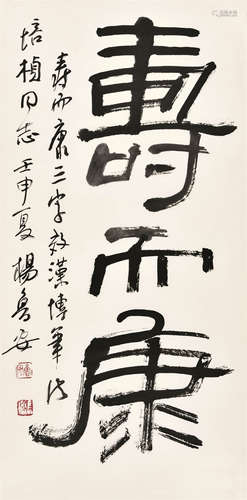 壽而康
壽而康三字效漢博筆法
培楨同志壬申夏楊魯安